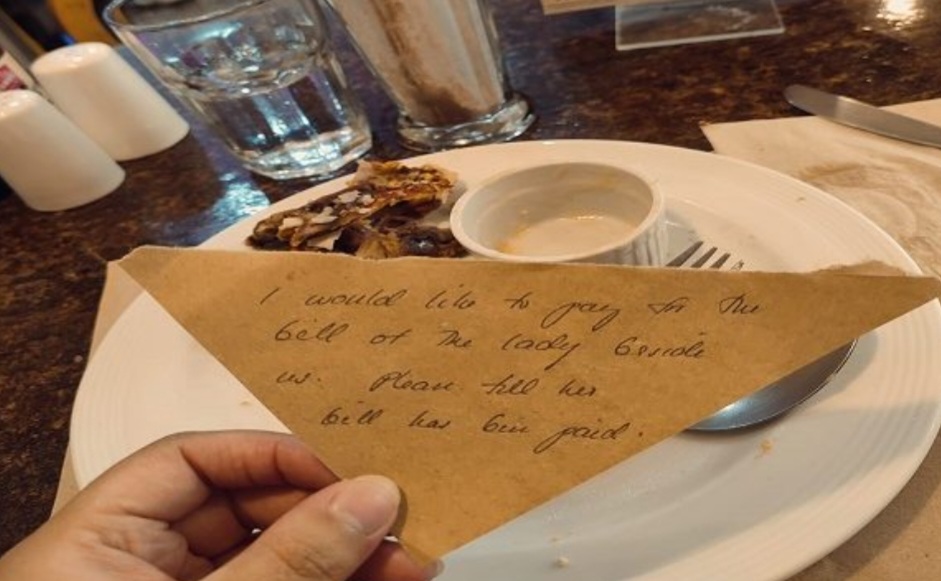 I would like to pay for the
bill of the lady beside
us. Please tell her
bill has been paid.